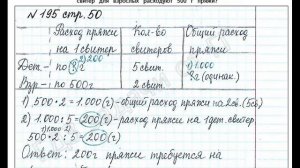 свитер для взрослых расходуют 500 г пряжи?
№ 195 стр. 50
Расход пряжи на 1 свитер
Кол-во свитеров
Общий расход пряжи
2) 200
Дет. - по ? г
5 свит.
1) 1.000
? г (одинак.)
Взр. - по 500 г
2 свит.
1) 500 • 2 = 1.000 (г) - общий расход пряжи на 2 св. (5 св)
2) 1.000 : 5 = 200 (г) - расход пряжи на 1 дет. свитер.
500 • 2 : 5 = 200 (г)
Ответ: 200 г пряжи требуется на